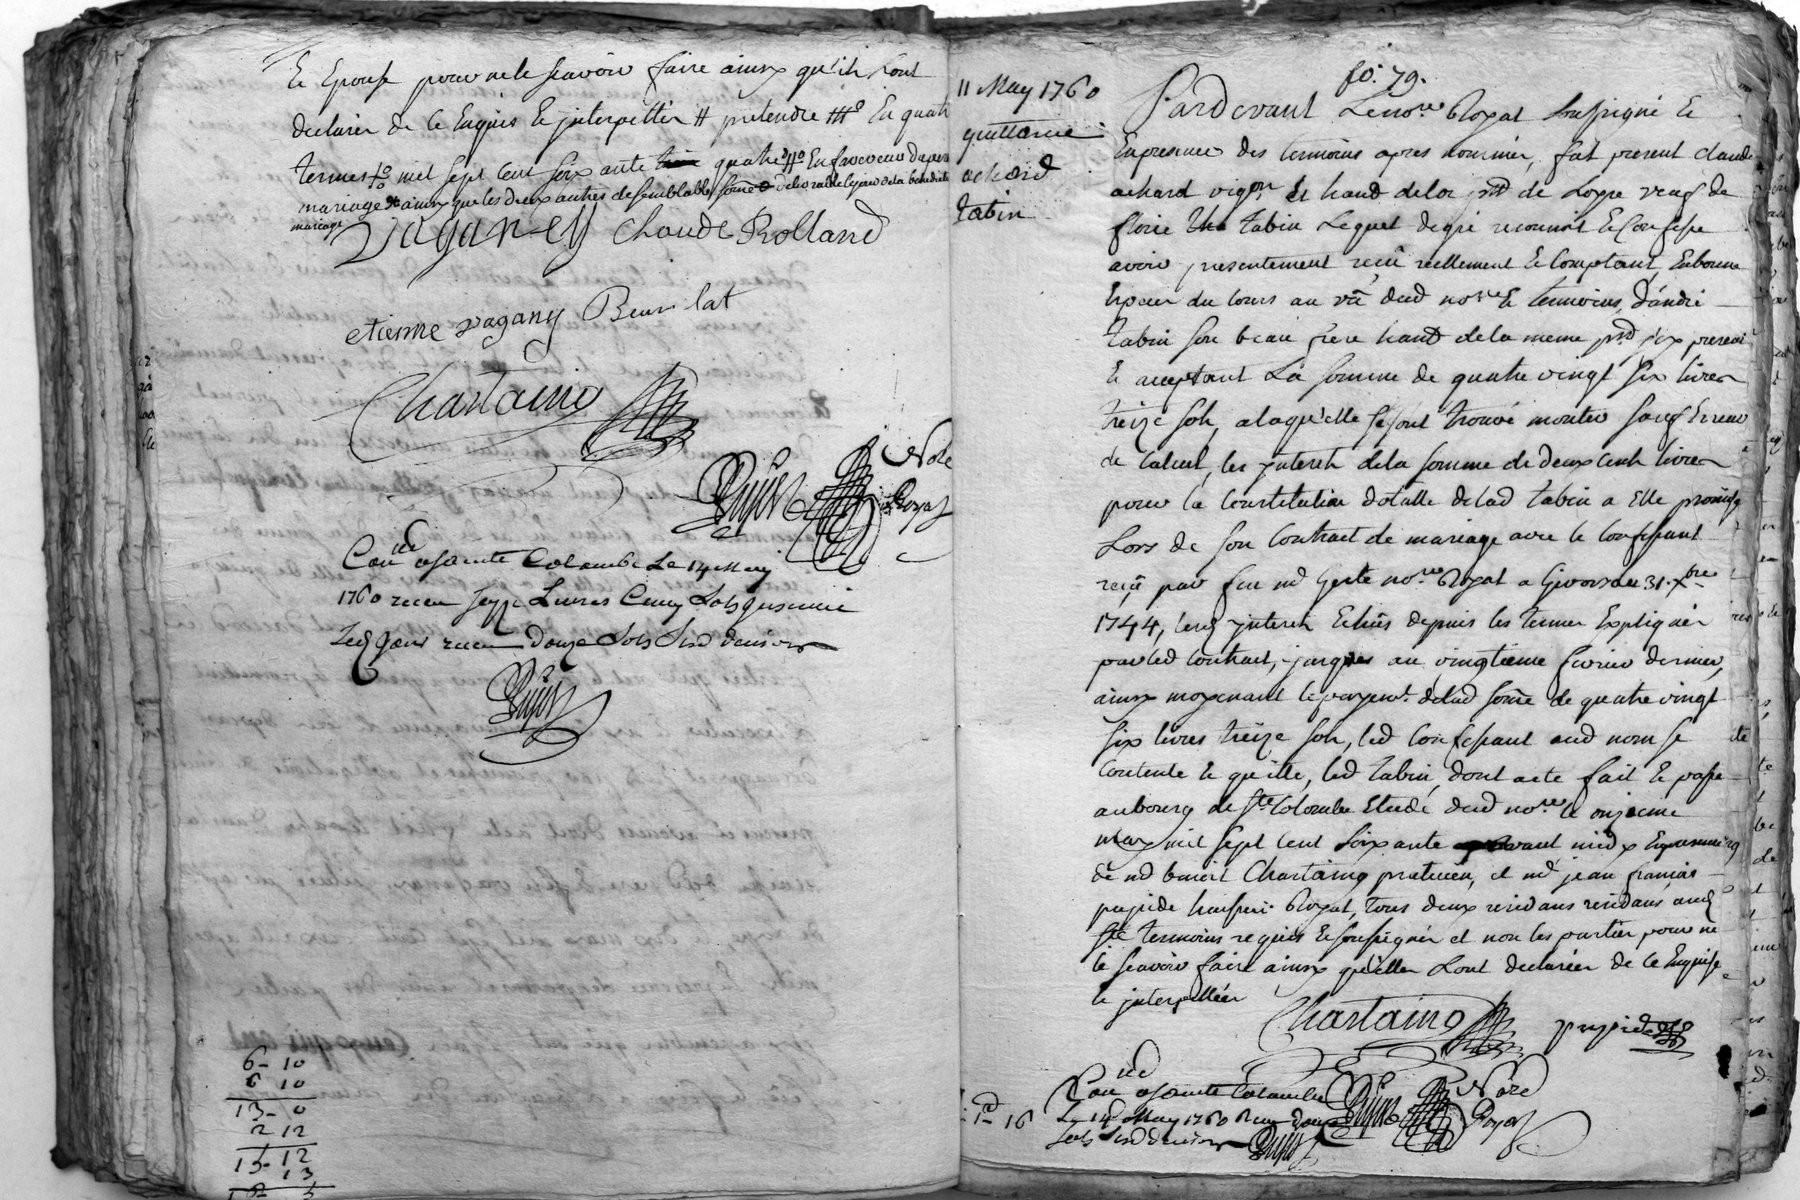 Et Epouse pour ne le scavoir faire ainsy qu'ils l'ont
declarés de ce Enquis & jnterpellés # pretendre En quatre
termes mil sept cent soixante quatre En faveur du present
mariage & ainsy que les deux autres de semblable somme de la benediction
mariage
vaganey Claude Rolland
etienne vagany Beurlat
Chartaing
Pujos Nore
Royal
Con.lé a Sainte Colombe Le 14 May
1760 receu Livres Cinq Sols
Led. jour receu Douze Sols Six deniers
Pujos
6 - 10
6 10
13 - 0
2 12
15 - 12
13
fo. 79.
11 May 1760
quittance
achard
tabin
Pardevant Le no.re Royal soussigné &
En presence des temoins apres nommés, fut present claude
achard vigon habt de la de Loyre veuf de
florie tabin Lequel de gré reconnoit & Confesse
avoir presentement receu reellement & Comptant, En bonne
Espece du Cours au vû dud no.re & temoins, d'andré
tabin son beau frere habt de la meme p.sse jcy present
& acceptant La somme de quatre vingt six livres
treize sols, a laqu'elle se sont trouvé monter sauf Erreur
de Calcul, les jnterets de la somme de deux Cents livres
pour la Constitution dotalle de lad tabin a Elle promise
Lors de son Contract de mariage avec le Confessant
reçû par feu m.e no.re Royal a Givors du 31 x.bre
1744, lesd jnterets Echûs depuis les termes Expliqués
par led Contract, jusques au vingtieme fevrier dernier,
ainsy moyenant le payem.t de lad somme de quatre vingt
six livres treize sols, led Confessant aud nom se
Contente & quitte, led tabin, dont acte fait & passé
au bourg de S.te Colombe Etude dud no.re le onzieme
may mil sept cent soixante avant midy En presence
de m.e benoit Chartaing praticien, et m.e jean françois
pupide huissier Royal, tous deux residans residans aud
S.te temoins requis & soussignés et non les parties pour ne
le scavoir faire ainsy qu'elles L'ont declarées de ce Enquises
& jnterpellées
Chartaing pupide
Con.lé a Sainte Colombe Pujos Nore
Le 14 May 1760 Receu Douze Royal
Sols Six deniers Pujos
1 - 16